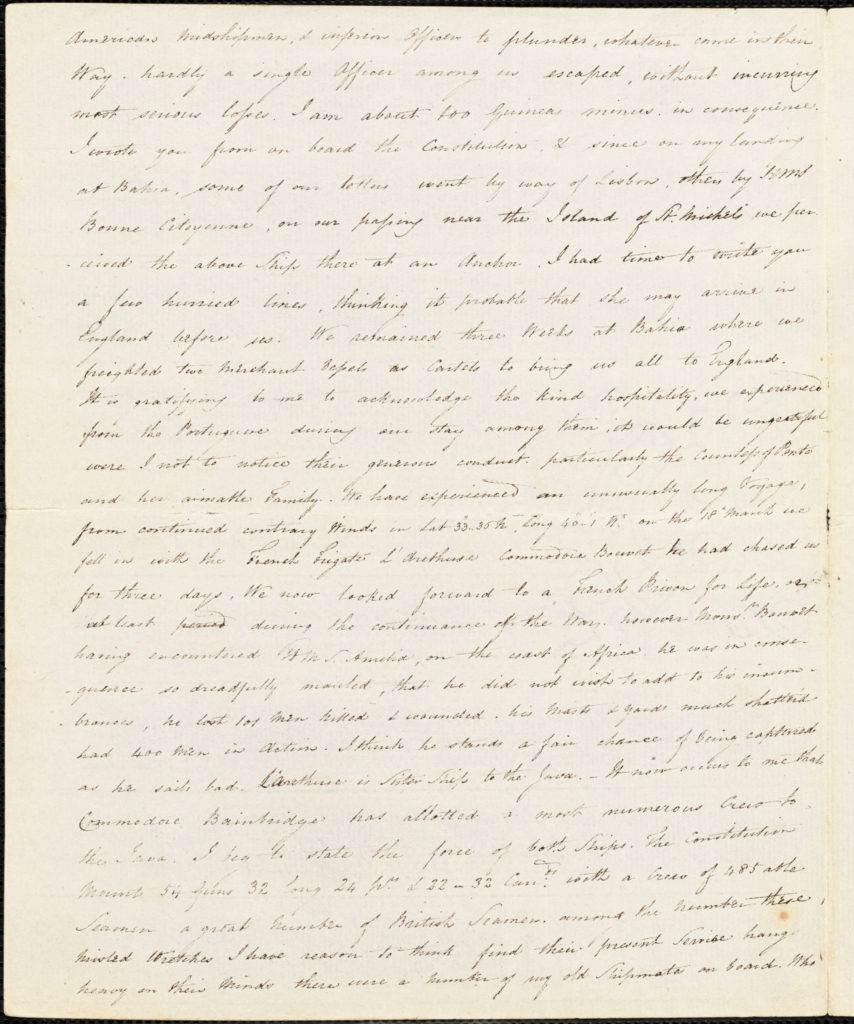 American Midshipmen, & inferior Officers to plunder, whatever came in their
Way. hardly a single Officer among us escaped, without incurring
most serious losses. I am about 100 Guineas minus. in consequence.
I wrote you from on board the Constitution, & since on my landing
at Bahia, some of our letters went by way of Lisbon, others by HMS
Bonne Citoyenne, on our passing near the Island of St. Michels we per-
-ceived the above Ship there at an Anchor. I had time to write you
a few hurried lines, thinking it probable that she may arrive in
England before us. We remained three Weeks at Bahia where we
freighted two Merchant Vessels as Cartels to bring us all to England.
It is gratifying to me to acknowledge the kind hospitality, we experienced
from the Portuguese during our stay among them, it would be ungrateful
were I not to notice their generous conduct. particularly the Countess of Ponte
and her aimable Family. We have experienced an unusually long Voyage,
from continued contrary Winds in Lat 33..36 N. Long 40..1 W. on the 18th March we
fell in with the French Frigate L'Arethuse Commodore Bouvet he had chased us
for three days, We now looked forward to a French Prison for Life, or
at least period during the continuance of the War. however Monsr. Bouvet
having encountered H M S. Amelia, on the coast of Africa he was in conse-
-quence so dreadfully mauled, that he did not wish to add to his incum-
-brances, he lost 105 Men killed & wounded. his Masts & yards much shattered
had 400 Men in Action. I think he stands a fair chance of being captured
as he sails bad. L'Arethuse is Sister Ship to the Java. - It now occurs to me that
Commodore Bainbridge has allotted a most numerous Crew to
the Java. I beg to state the force of both Ships. The Constitution
Mounts 54 Guns 32 long 24 Prs. & 22 - 32 Carrds. with a Crew of 485 able
Seamen a great number of British Seamen. among the number these
misled Wretches I have reason to think find their present Service hang
heavy on their Minds there were a number of my old Shipmates on board. Who